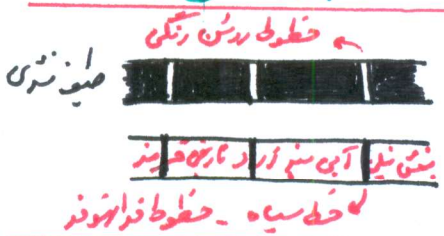 خطوط روشن رنگی
طیف نشری
بنفش نیلی آبی سبز زرد نارنجی قرمز
خط سیاه - خطوط فرانهوفر